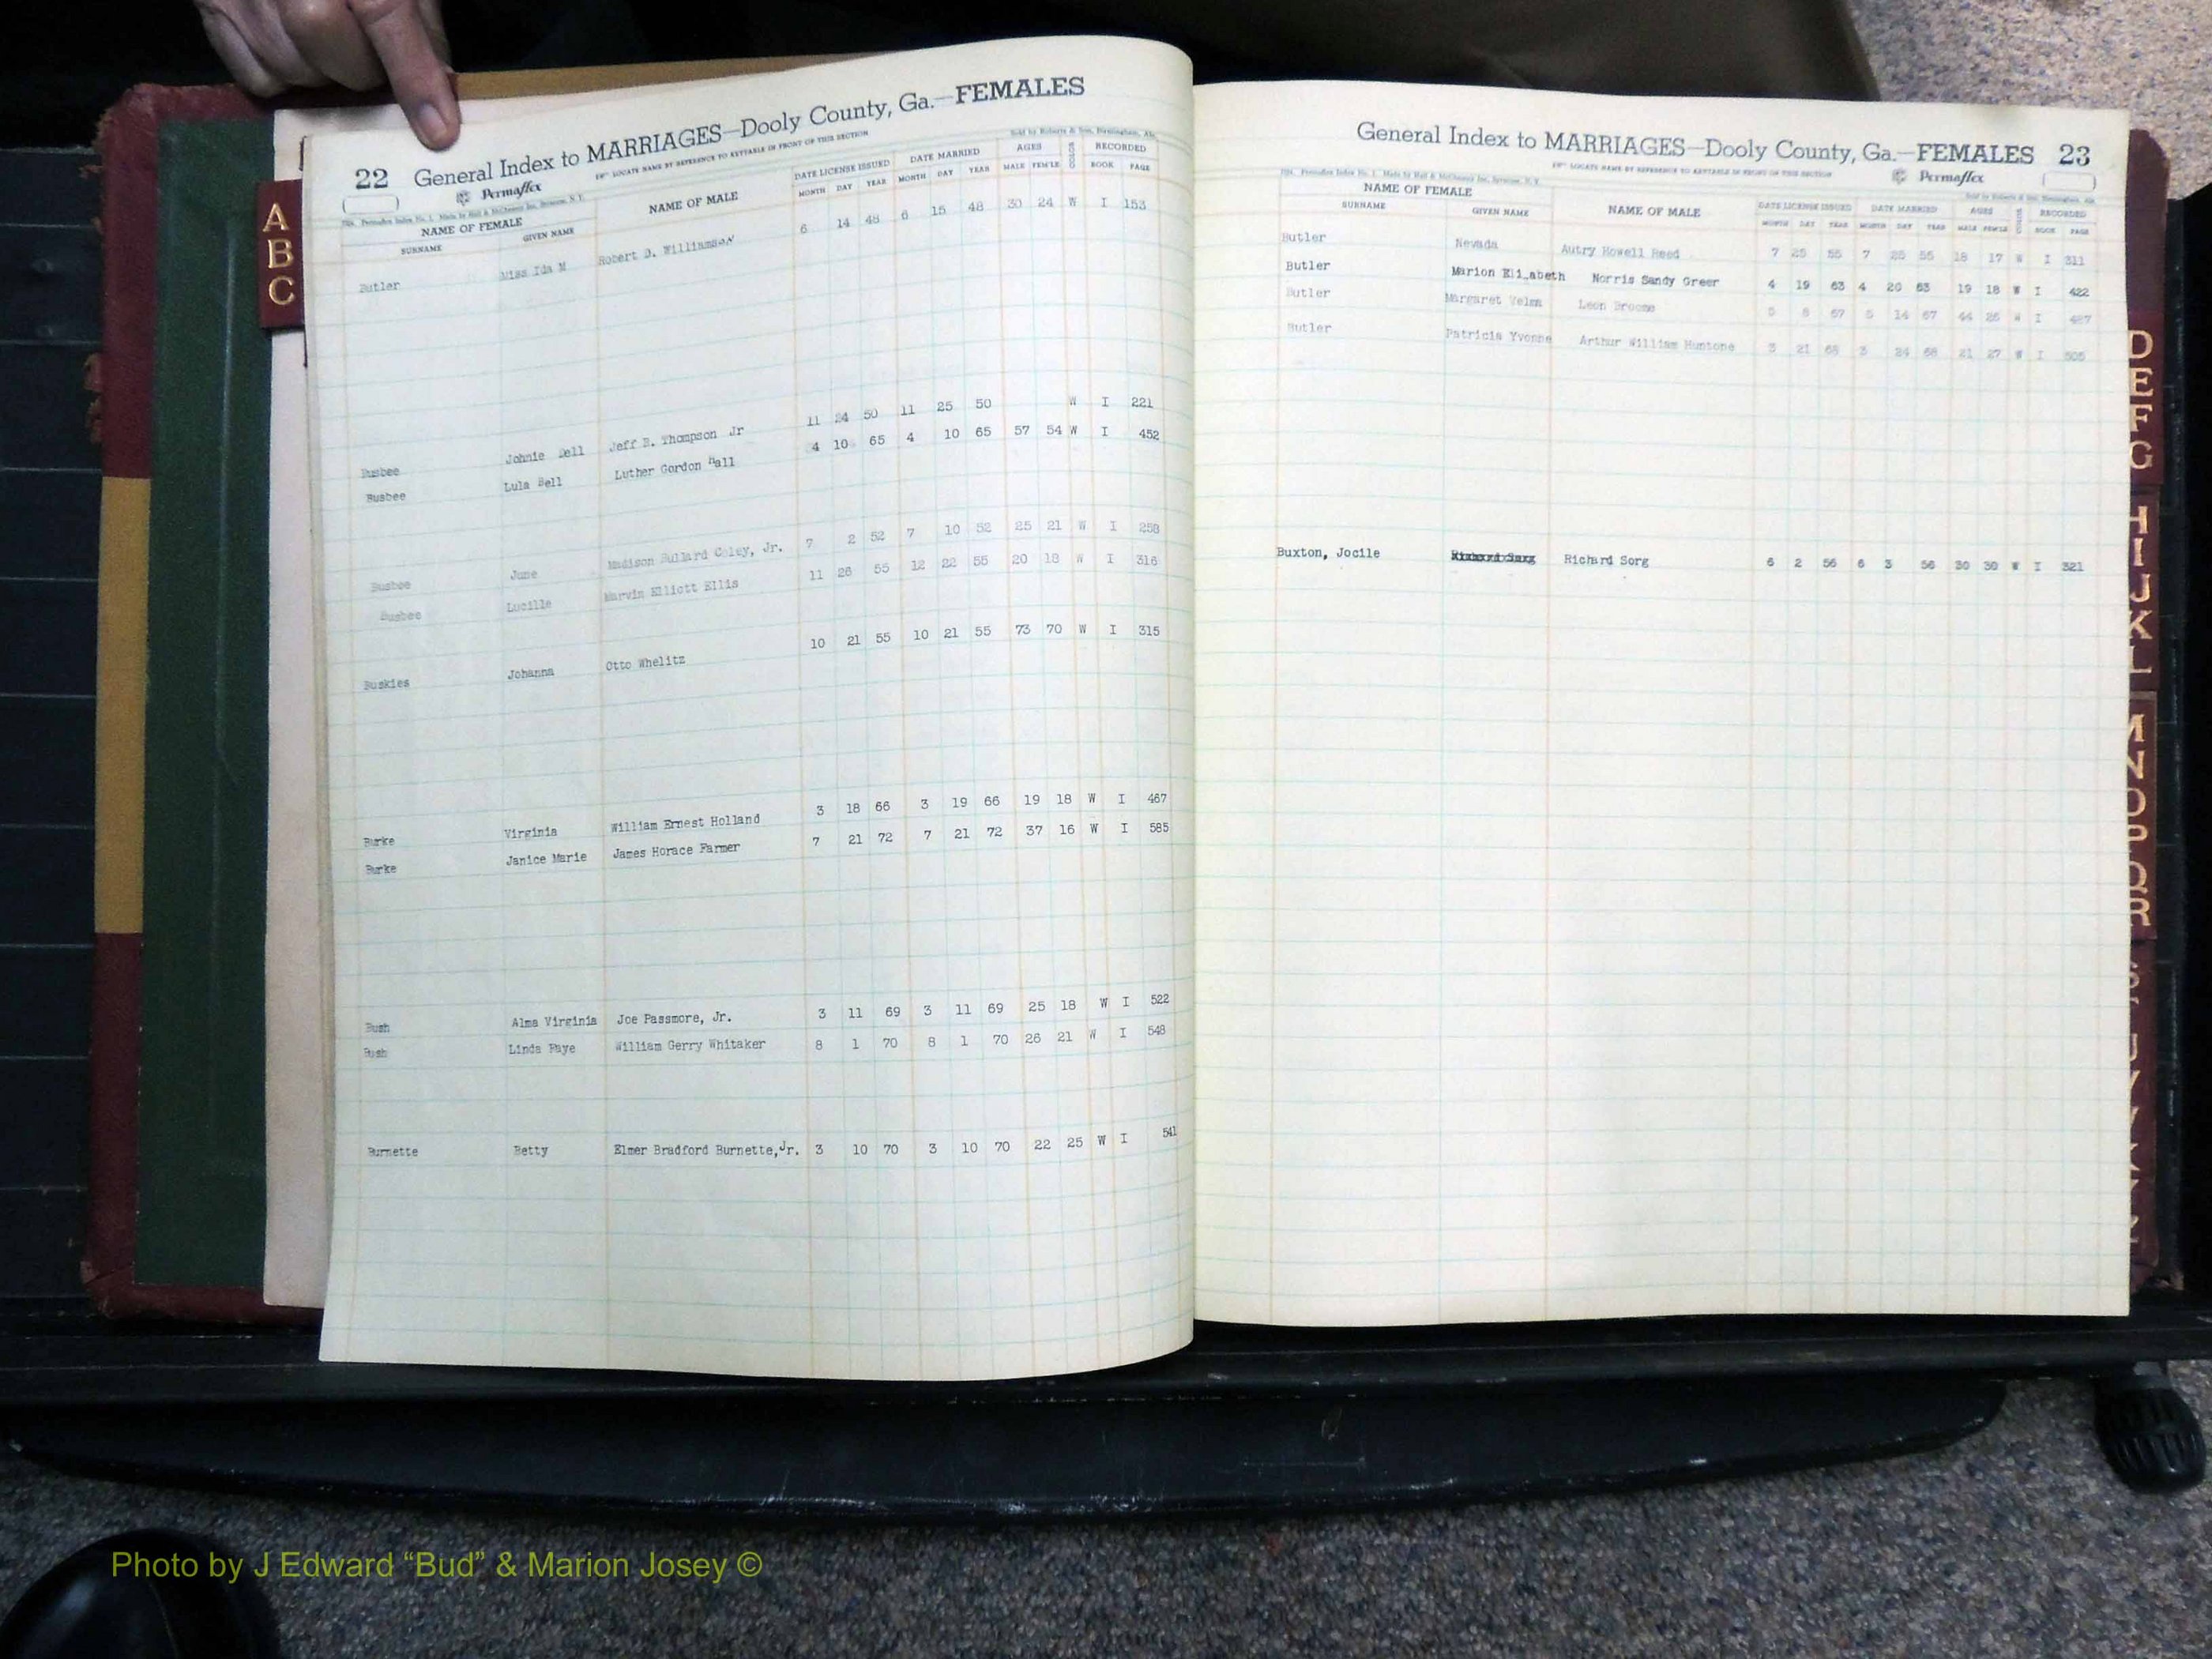 22 General Index to MARRIAGES—Dooly County, Ga.—FEMALES
Permaflex
LOCATE NAME BY REFERENCE TO KEYTABLE IN FRONT OF THIS SECTION
Sold by Roberts & Son, Birmingham, Ala.
NAME OF FEMALE NAME OF MALE DATE LICENSE ISSUED DATE MARRIED AGES COLOR RECORDED
SURNAME GIVEN NAME MONTH DAY YEAR MONTH DAY YEAR MALE FEM'LE BOOK PAGE
Butler Miss Ida M Robert D. Williamson 6 14 48 6 15 48 30 24 W I 153
Busbee Johnie Bell Jeff B. Thompson Jr 11 24 50 11 25 50 W I 221
Busbee Lula Bell Luther Gordon Hall 4 10 65 4 10 65 57 54 W I 452
Busbee June Madison Bullard Coley, Jr. 7 2 52 7 10 52 25 21 W I 258
Busbee Lucille Marvin Elliott Ellis 11 26 55 12 22 55 20 18 W I 316
Buskies Johanna Otto Whelitz 10 21 55 10 21 55 73 70 W I 315
Burke Virginia William Ernest Holland 3 18 66 3 19 66 19 18 W I 467
Burke Janice Marie James Horace Farmer 7 21 72 7 21 72 37 16 W I 585
Bush Alma Virginia Joe Passmore, Jr. 3 11 69 3 11 69 25 18 W I 522
Bush Linda Faye William Gerry Whitaker 8 1 70 8 1 70 26 21 W I 548
Burnette Betty Elmer Bradford Burnette,Jr. 3 10 70 3 10 70 22 25 W I 541
General Index to MARRIAGES—Dooly County, Ga.—FEMALES 23
LOCATE NAME BY REFERENCE TO KEYTABLE IN FRONT OF THIS SECTION
Permaflex
NAME OF FEMALE NAME OF MALE DATE LICENSE ISSUED DATE MARRIED AGES COLOR RECORDED
SURNAME GIVEN NAME MONTH DAY YEAR MONTH DAY YEAR MALE FEM'LE BOOK PAGE
Butler Nevada Autry Howell Reed 7 25 55 7 25 55 18 17 W I 311
Butler Marion Elizabeth Norris Sandy Greer 4 19 63 4 20 63 19 18 W I 422
Butler Margaret Velma Leon Broome 5 8 67 5 14 67 44 26 W I 487
Butler Patricia Yvonne Arthur William Huntone 3 21 68 3 24 68 21 27 W I 505
Buxton, Jocile Richard Sorg 6 2 56 6 3 56 30 30 W I 321
A
B
C
D
E
F
G
H
I
J
K
L
M
N
O
P
Q
R
S
T
U
V
Photo by J Edward “Bud” & Marion Josey ©